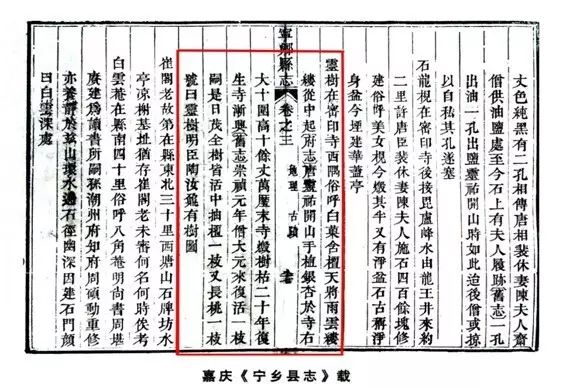 丈色純黑有二孔相傳唐相裴休妻陳夫人齋
僧供油鹽處至今石上有夫人履跡舊志一孔
出油一孔出鹽靈祐開山時如此迨後僧或掠
以自私其孔遂塞
石龍梘在密印寺後接毘盧峰水由龍王井來約
二里許唐臣裴休妻陳夫人施石四百餘塊修
建俗呼美女梘今燬其半又有淨盆石古稱淨
身盆今埋建華藎亭
靈樹在密印寺西隅俗呼白菓含檀天將雨雲縷
縷從中起府志唐靈祐開山手植銀杏於寺右
寧鄉縣志 卷之三 地理 古蹟
大十圍高十餘丈萬厯末寺燬樹枯二十年復
生寺漸興舊志崇禎元年僧大元來復活一枝
嗣是日茂全樹皆活中抽檀一枝又長桃一枝
號曰靈樹明臣陶汝鼐有樹圖
崔閣老故第在縣東北三十里西塘山石牌坊水
亭凉榭基址猶存崔閣老未審何名何時俟考
白雲菴在縣南四十里俗呼八角菴明尚書周堪
賡建為讀書所嗣孫潮州府知府周碩勳重修
亦養靜於玆山環水遶石徑幽深因建石門顏
曰白雲深處
嘉庆《宁乡县志》载